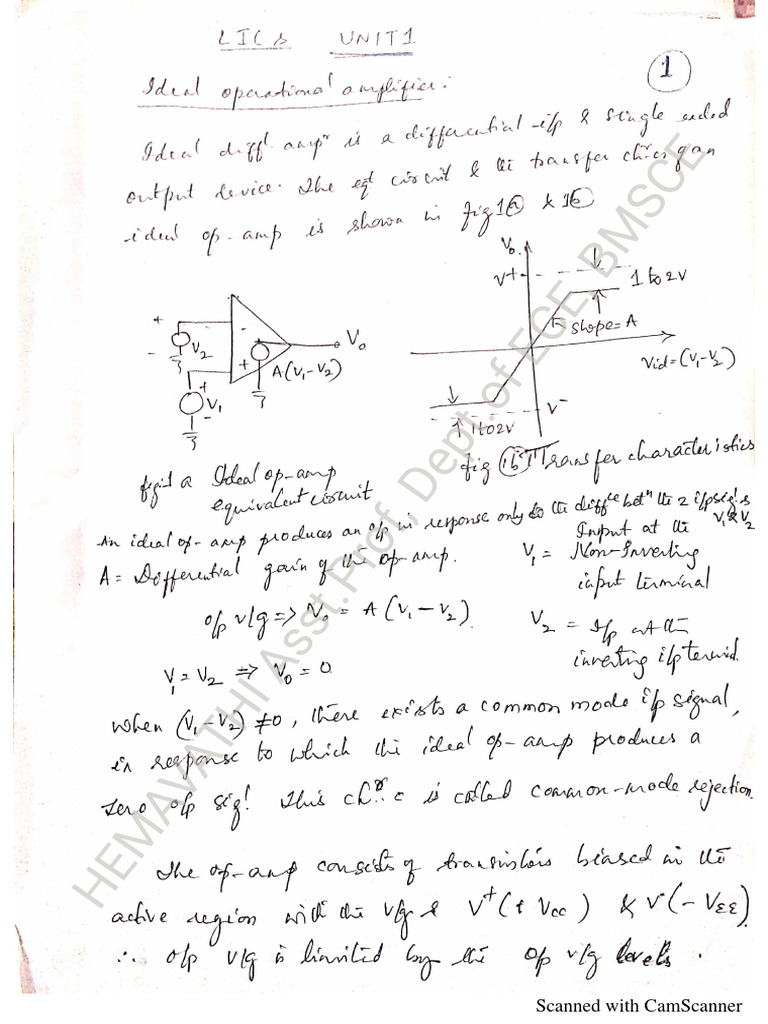 LICs UNIT1
1
Ideal operational amplifier:
Ideal diff! ampr is a differential-i/p & single ended
output device. The eqt circuit & the transfer ch'ics of an
ideal op-amp is shown in fig 1a & 1b
V0
V+
1 to 2V
slope=A
Vid=(V1-V2)
V-
1 to 2V
+
-
V2
-
+
+
V1
-
V0
A(V1-V2)
fig 1b Transfer characteristics
fig 1 a Ideal op-amp
equivalent circuit
An ideal op-amp produces an o/p in response only to the diffce betn the 2 i/p sig!s V1 & V2
A = Differential gain of the op-amp.
V1 = Input at the
Non-Inverting
input terminal
o/p v/g => V0 = A(V1-V2)
V2 = I/p at the
inverting i/p termid.
V1 = V2 => V0 = 0
When (V1-V2) ≠0, there exists a common mode i/p signal,
in response to which the ideal op-amp produces a
zero o/p sig! This is called common-mode rejection.
The op-amp consists of transistors biased in the
active region with the v/g s V+(+Vcc) & V-(-VEE).
∴ o/p v/g is limited by the o/p v/g levels.
HEMAVATHI Asst.Prof, Dept.of ECE, BMSCE
Scanned with CamScanner